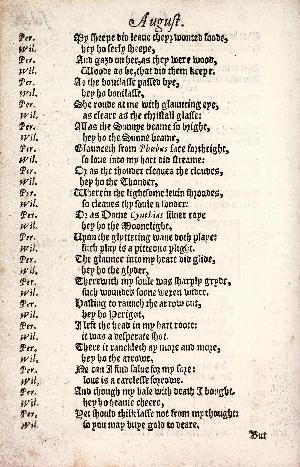 August.
Per. My sheepe did leaue theyr wonted foode,
Wil. hey ho seely sheepe,
Per. And gazd on her, as they were wood,
Wil. Woode as he, that did them keepe.
Per. As the bonilasse passed bye,
Wil. hey ho bonilasse,
Per. She roude at me with glauncing eye,
Wil. as cleare as the christall glasse:
Per. All as the Sunnye beame so bright,
Wil. hey ho the Sunne beame,
Per. Glaunceth from Phœbus face forthright,
Wil. so loue into my hart did streame:
Per. Or as the thonder cleaues the cloudes,
Wil. hey ho the Thonder,
Per. Wherein the lightsome leuin shroudes,
Wil. so cleaues thy soule a sonder:
Per. Or as Dame Cynthias siluer raye
Wil. hey ho the Moonelight,
Per. Upon the glyttering waue doth playe:
Wil. such play is a pitteous plight.
Per. The glaunce into my heart did glide,
Wil. hey ho the glyder,
Per. Therewith my soule was sharply gryde,
Wil. such woundes soone wexen wider.
Per. Hasting to raunch the arrow out,
Wil. hey ho Perigot,
Per. I left the head in my hart roote:
Wil. it was a desperate shot.
Per. There it ranckleth ay more and more,
Wil. hey ho the arrowe,
Per. Ne can I find salue for my sore:
Wil. loue is a carelesse sorrowe.
Per. And though my bale with death I bought,
Wil. hey ho heauie cheere,
Per. Yet should thilk lasse not from my thought:
Wil. so you may buye gold to deare.
But